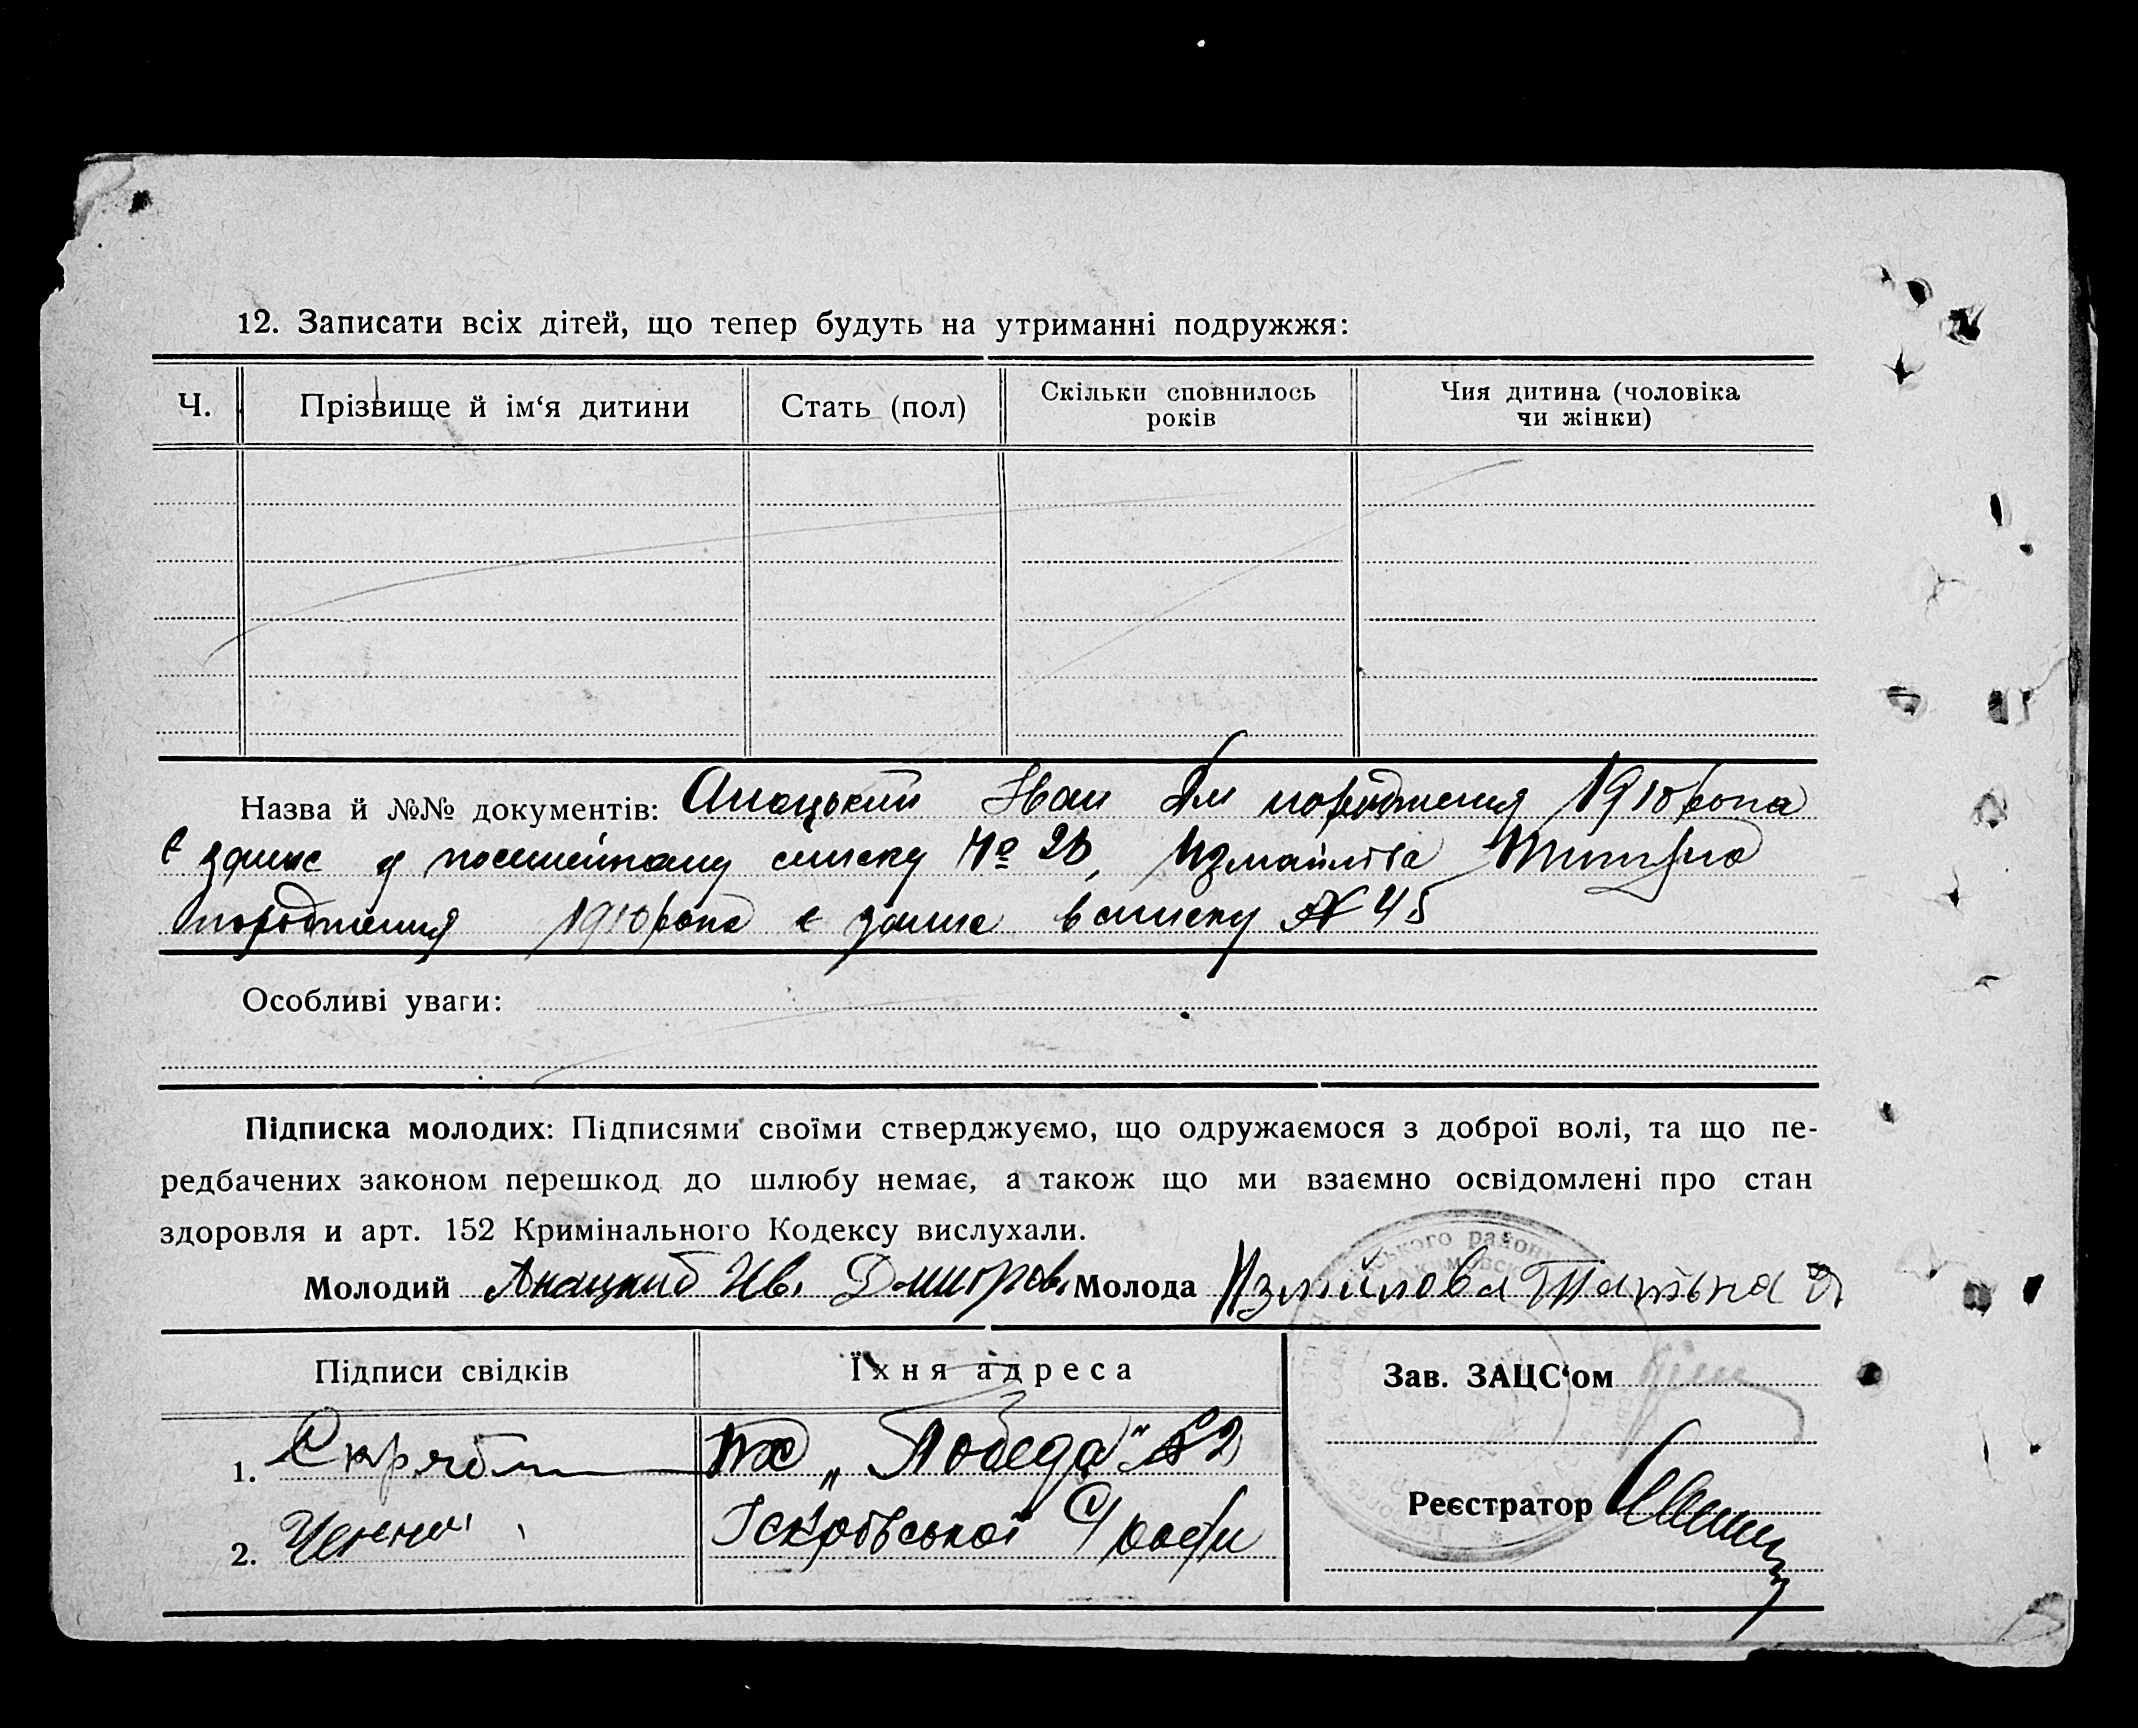 12. Записати всіх дітей, що тепер будуть на утриманні подружжя:
Ч.
Прізвище й ім‘я дитини
Стать (пол)
Скільки сповнилось
років
Чия дитина (чоловіка
чи жінки)
Назва й №№ документів: Анацький Іван Дм породження 1910 рока
є запис у посімейному списку № 28, Измайлова Титяна
породження 1910 рока є запис в списку № 45
Особливі уваги:
Підписка молодих: Підписями своїми стверджуємо, що одружаємося з доброї волі, та що пе-
редбачених законом перешкод до шлюбу немає, а також що ми взаємно освідомлені про стан
здоровля и арт. 152 Кримінального Кодексу вислухали.
Молодий Анацкий Ив. Дмитров. Молода Измайлова Татьяна
Підписи свідків
Їхня адреса
Зав. ЗАЦС‘ом
1. тх „Победа" № 2
Реєстратор
2. Іскровської